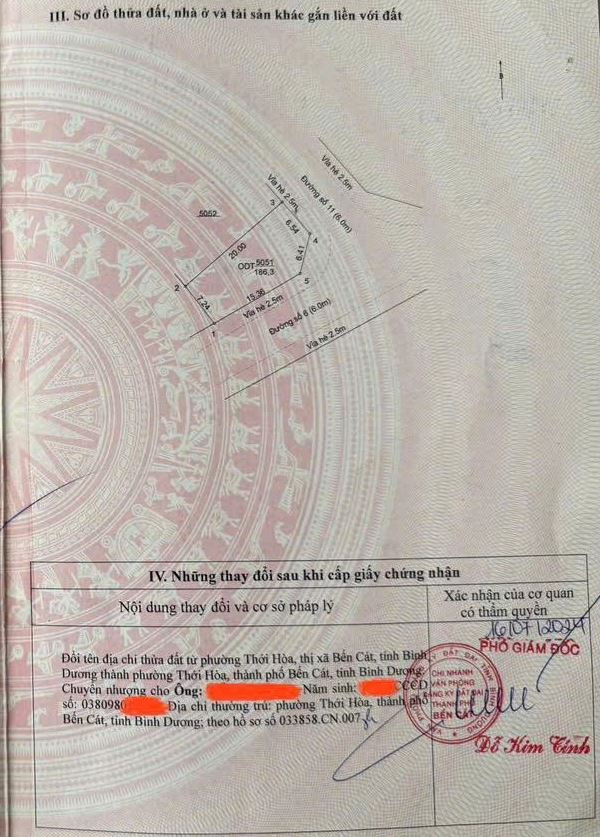 III. Sơ đồ thửa đất, nhà ở và tài sản khác gắn liền với đất
B
Vỉa hè 2.5m
Vỉa hè 2.5m
Đường số 11 (6.0m)
3
5052
6.54
4
20.00
ODT 5051
186,3
6.41
2
5
7.24
15.36
Vỉa hè 2.5m
1
Đường số 6 (6.0m)
Vỉa hè 2.5m
IV. Những thay đổi sau khi cấp giấy chứng nhận
Nội dung thay đổi và cơ sở pháp lý
Xác nhận của cơ quan
có thẩm quyền
16/07/2024
PHÓ GIÁM ĐỐC
Đổi tên địa chỉ thửa đất từ phường Thới Hòa, thị xã Bến Cát, tỉnh Bình
Dương thành phường Thới Hòa, thành phố Bến Cát, tỉnh Bình Dương.
Chuyển nhượng cho Ông: Năm sinh: CCCD
số: 0380980 Địa chỉ thường trú: phường Thới Hòa, thành phố
Bến Cát, tỉnh Bình Dương; theo hồ sơ số 033858.CN.007
CHI NHÁNH
VĂN PHÒNG
ĐĂNG KÝ ĐẤT ĐAI
THÀNH PHỐ
BẾN CÁT
Đỗ Kim Tính